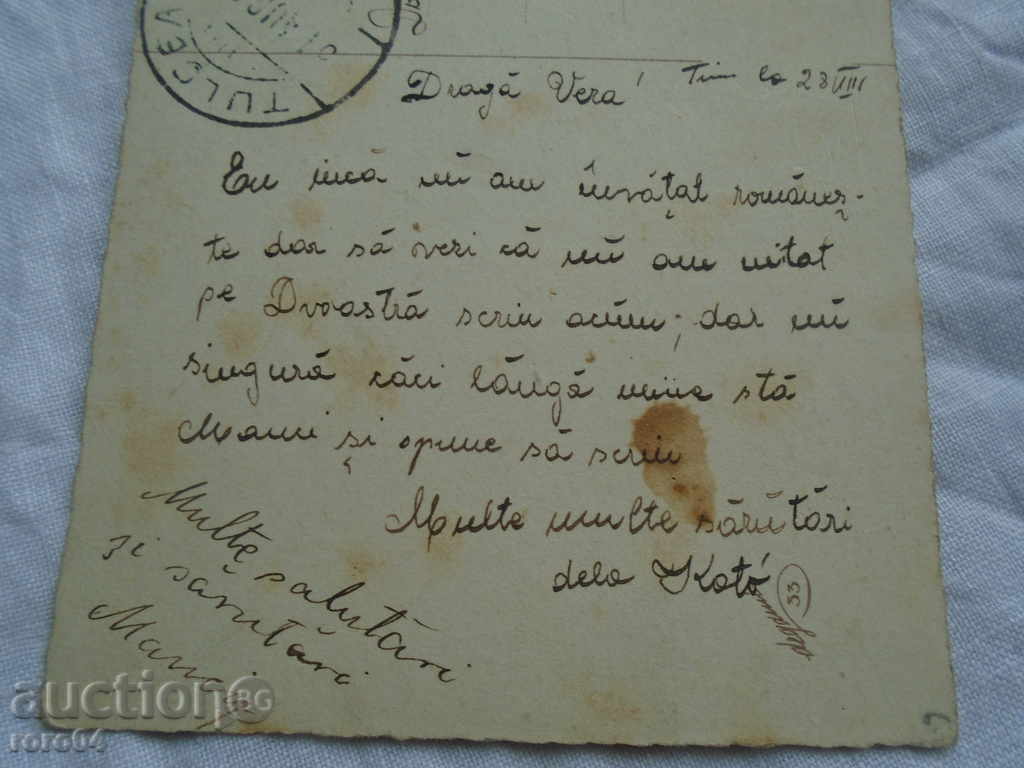 TULCEA
Dragă Vera! Tim la 23 VIII
Eu incă nŭ am învăţat românez-
te dar să vezi că nŭ am uitat
pe Dvoastră scriu acŭm; dar nŭ
singură căci lângă mine stă
Mami şi spune să scriu
Multe multe sărŭtări
dela Kató
33
Multe salutări
si sărutări
Manci
auctionBG
roro64